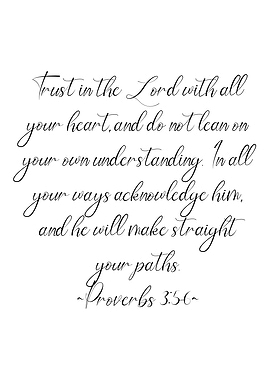 Trust in the Lord with all
your heart, and do not lean on
your own understanding. In all
your ways acknowledge him,
and he will make straight
your paths.
~Proverbs 3:5-6~